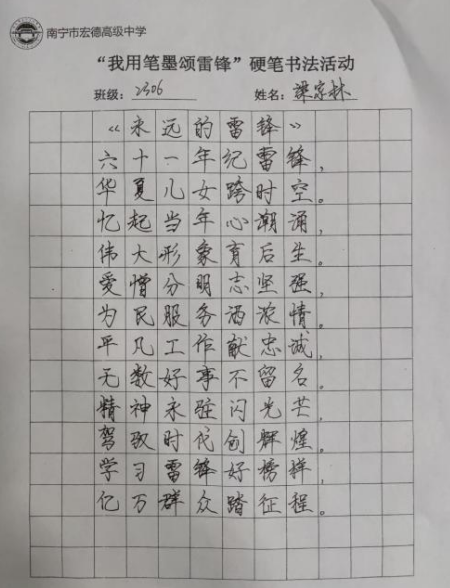 南宁市宏德高级中学
“我用笔墨颂雷锋”硬笔书法活动
班级：2306 姓名：梁家林
《永远的雷锋》
六十一年纪雷锋，
华夏儿女跨时空。
忆起当年心潮涌，
伟大形象育后生。
爱憎分明志坚强，
为民服务洒浓情。
平凡工作献忠诚，
无数好事不留名。
精神永驻闪光芒，
驾驭时代创辉煌。
学习雷锋好榜样，
亿万群众踏征程。